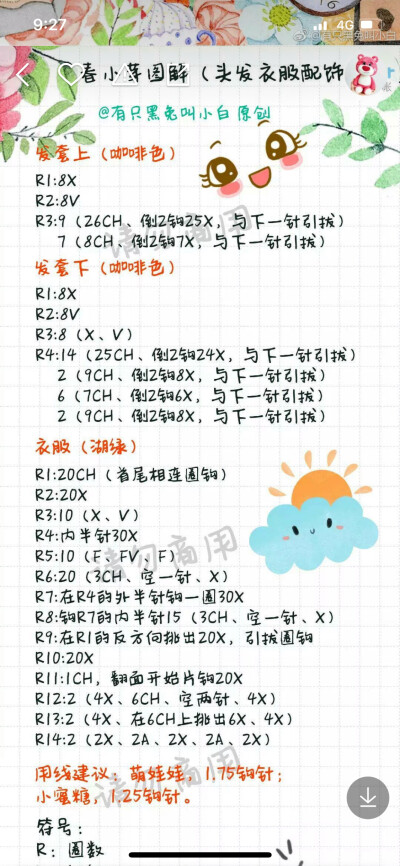 9:27
4G
春小莓图解（头发衣服配饰
@有只黑兔叫小白 原创
发套上（咖啡色）
R1:8X
R2:8V
R3:9（26CH、倒2钩25X，与下一针引拔）
7（8CH、倒2钩7X，与下一针引拔）
发套下（咖啡色）
R1:8X
R2:8V
R3:8（X、V）
R4:14（25CH、倒2钩24X，与下一针引拔）
2（9CH、倒2钩8X，与下一针引拔）
6（7CH、倒2钩6X，与下一针引拔）
2（9CH、倒2钩8X，与下一针引拔）
请勿商用
衣服（湖绿）
R1:20CH（首尾相连圈钩）
R2:20X
R3:10（X、V）
R4:内半针30X
R5:10（F、FV、F）
R6:20（3CH、空一针、X）
R7:在R4的外半针钩一圈30X
R8:钩R7的内半针15（3CH、空一针、X）
R9:在R1的反方向挑出20X，引拔圈钩
R10:20X
R11:1CH，翻面开始片钩20X
R12:2（4X、6CH、空两针、4X）
R13:2（4X、在6CH上挑出6X、4X）
R14:2（2X、2A、2X、2A、2X）
请勿商用
用线建议：萌娃娃，1.75钩针；
小蜜糖，1.25钩针。
请勿商用
符号：
R：圈数